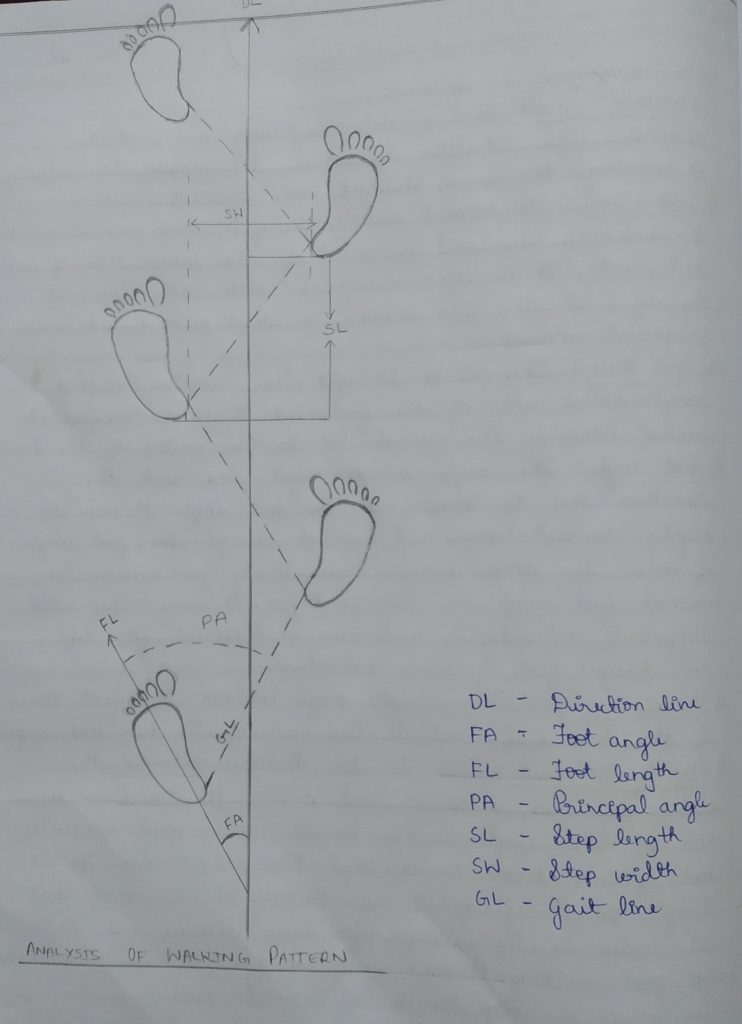 DL
SW
SL
FL
PA
GL
FA
DL - Direction line
FA - Foot angle
FL - Foot length
PA - Principal angle
SL - Step length
SW - Step width
GL - Gait line
ANALYSIS OF WALKING PATTERN